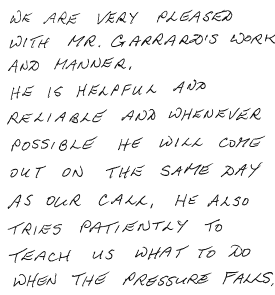 WE ARE VERY PLEASED
WITH MR. GARRARD'S WORK
AND MANNER.
HE IS HELPFUL AND
RELIABLE AND WHENEVER
POSSIBLE HE WILL COME
OUT ON THE SAME DAY
AS OUR CALL, HE ALSO
TRIES PATIENTLY TO
TEACH US WHAT TO DO
WHEN THE PRESSURE FALLS.